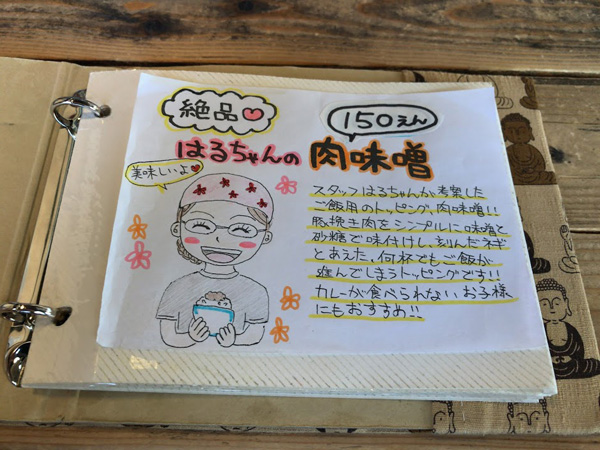 絶品♡
150えん
はるちゃんの 肉味噌
美味しいよ♥
スタッフはるちゃんが考案した
ご飯用のトッピング、肉味噌!!
豚挽き肉をシンプルに味噌と
砂糖で味付けし、刻んだネギ
とあえた、何杯でもご飯が
進んでしまうトッピングです!!
カレーが食べられないお子様
にもおすすめ!!